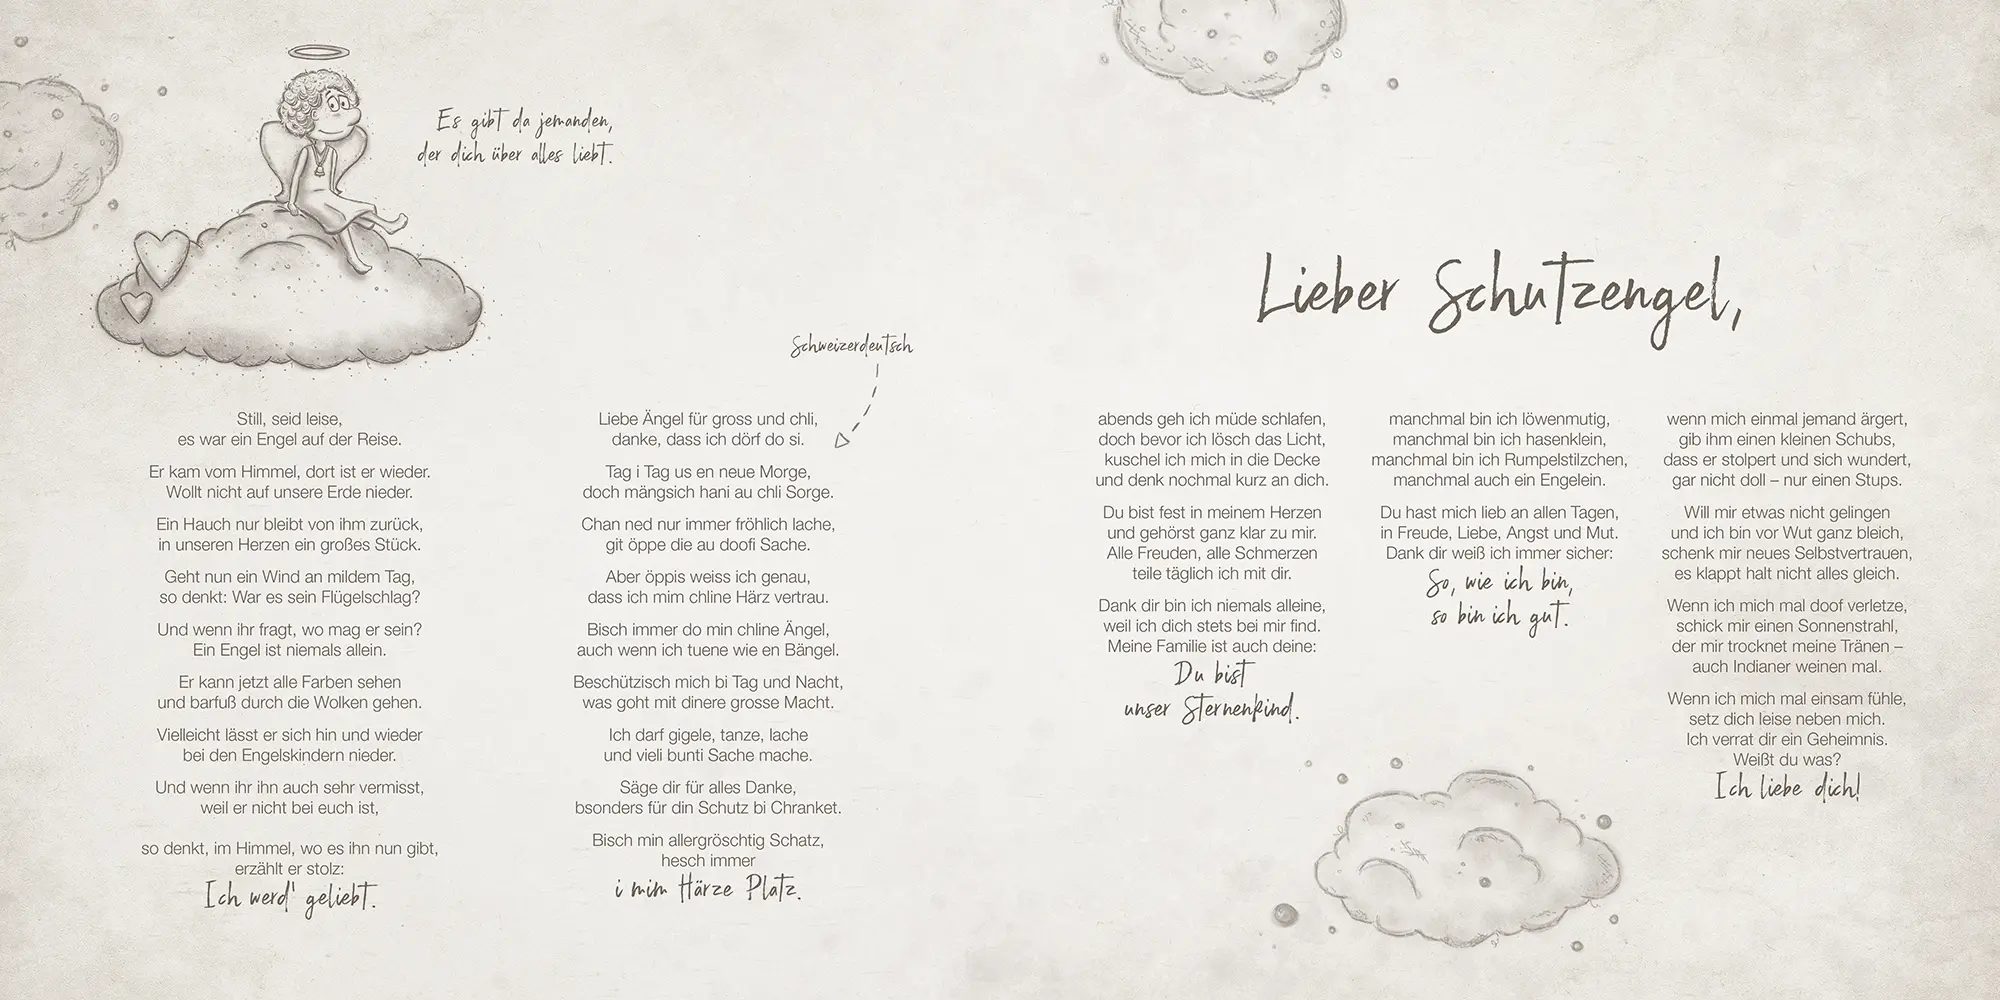 Es gibt da jemanden,
der dich über alles liebt.
Still, seid leise,
es war ein Engel auf der Reise.
Er kam vom Himmel, dort ist er wieder.
Wollt nicht auf unsere Erde nieder.
Ein Hauch nur bleibt von ihm zurück,
in unseren Herzen ein großes Stück.
Geht nun ein Wind an mildem Tag,
so denkt: War es sein Flügelschlag?
Und wenn ihr fragt, wo mag er sein?
Ein Engel ist niemals allein.
Er kann jetzt alle Farben sehen
und barfuß durch die Wolken gehen.
Vielleicht lässt er sich hin und wieder
bei den Engelskindern nieder.
Und wenn ihr ihn auch sehr vermisst,
weil er nicht bei euch ist,
so denkt, im Himmel, wo es ihn nun gibt,
erzählt er stolz:
Ich werd' geliebt.
Schweizerdeutsch
Liebe Ängel für gross und chli,
danke, dass ich dörf do si.
Tag i Tag us en neue Morge,
doch mängsich hani au chli Sorge.
Chan ned nur immer fröhlich lache,
git öppe die au doofi Sache.
Aber öppis weiss ich genau,
dass ich mim chline Härz vertrau.
Bisch immer do min chline Ängel,
auch wenn ich tuene wie en Bängel.
Beschützisch mich bi Tag und Nacht,
was goht mit dinere grosse Macht.
Ich darf gigele, tanze, lache
und vieli bunti Sache mache.
Säge dir für alles Danke,
bsonders für din Schutz bi Chranket.
Bisch min allergröschtig Schatz,
hesch immer
i mim Härze Platz.
Lieber Schutzengel,
abends geh ich müde schlafen,
doch bevor ich lösch das Licht,
kuschel ich mich in die Decke
und denk nochmal kurz an dich.
Du bist fest in meinem Herzen
und gehörst ganz klar zu mir.
Alle Freuden, alle Schmerzen
teile täglich ich mit dir.
Dank dir bin ich niemals alleine,
weil ich dich stets bei mir find.
Meine Familie ist auch deine:
Du bist
unser Sternenkind.
manchmal bin ich löwenmutig,
manchmal bin ich hasenklein,
manchmal bin ich Rumpelstilzchen,
manchmal auch ein Engelein.
Du hast mich lieb an allen Tagen,
in Freude, Liebe, Angst und Mut.
Dank dir weiß ich immer sicher:
So, wie ich bin,
so bin ich gut.
wenn mich einmal jemand ärgert,
gib ihm einen kleinen Schubs,
dass er stolpert und sich wundert,
gar nicht doll – nur einen Stups.
Will mir etwas nicht gelingen
und ich bin vor Wut ganz bleich,
schenk mir neues Selbstvertrauen,
es klappt halt nicht alles gleich.
Wenn ich mich mal doof verletze,
schick mir einen Sonnenstrahl,
der mir trocknet meine Tränen –
auch Indianer weinen mal.
Wenn ich mich mal einsam fühle,
setz dich leise neben mich.
Ich verrat dir ein Geheimnis.
Weißt du was?
Ich liebe dich!